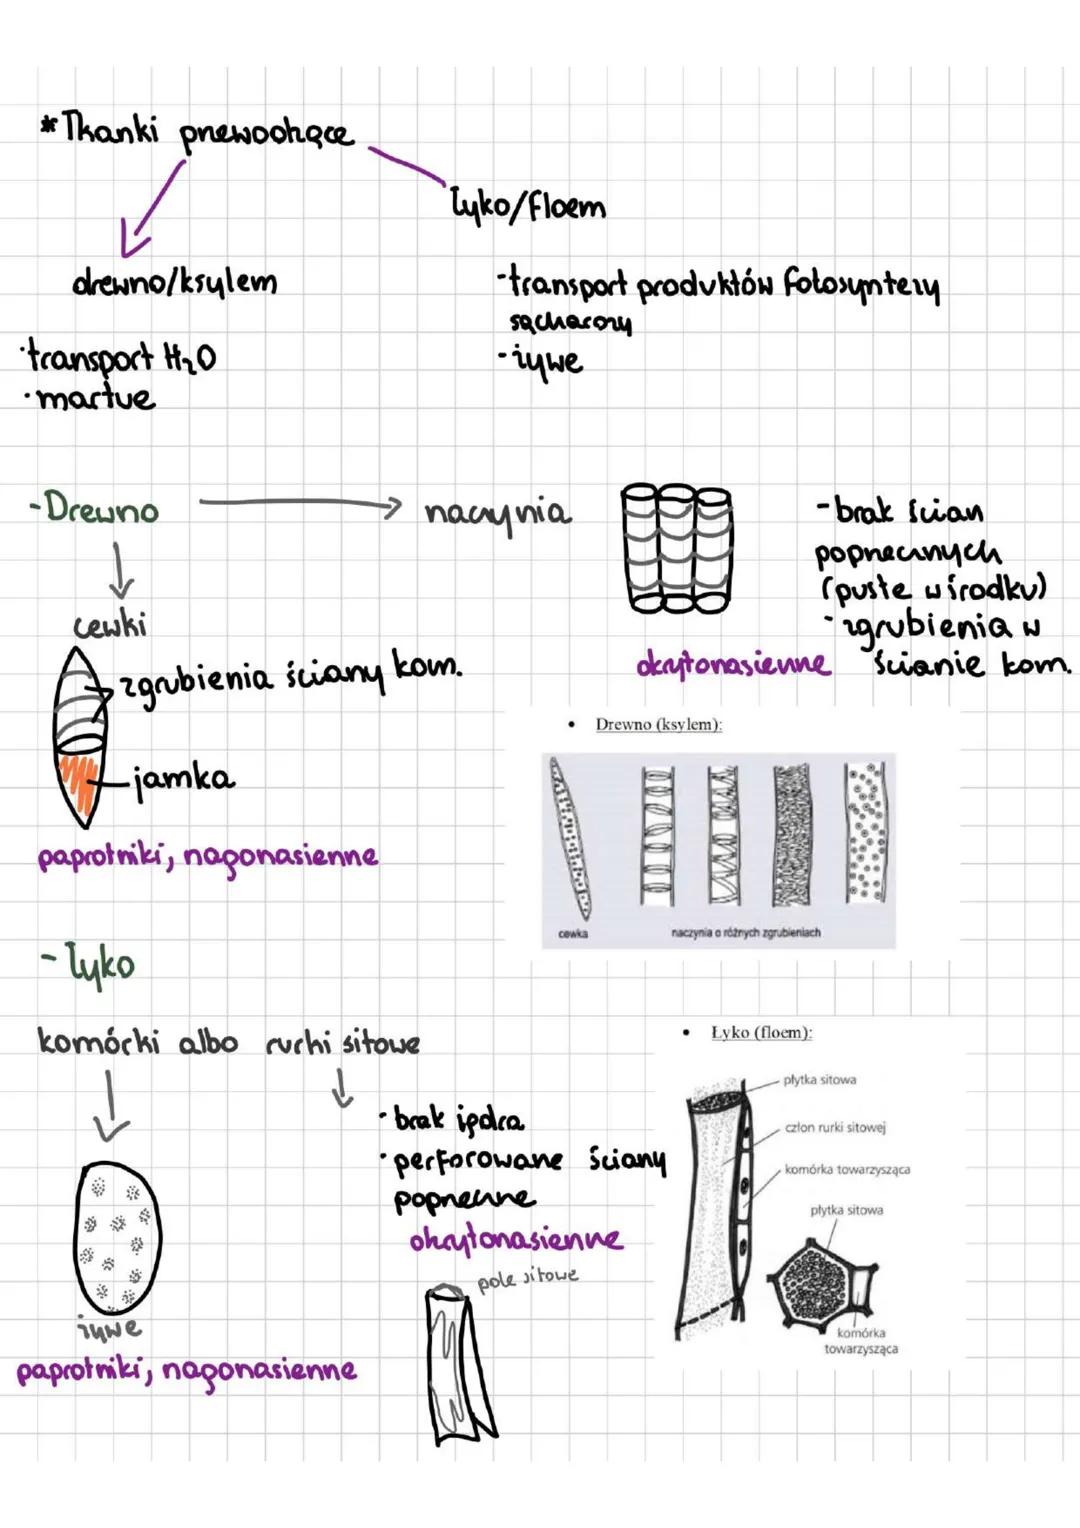 * Tkanki przewodzące
łyko/floem
drewno/ksylem
- transport produktów fotosyntezy
sacharozy
- żywe
· transport H₂O
· martwe
- Drewno
naczynia
- brak ścian
poprzecznych
(puste w środku)
- zgrubienia w
ścianie kom.
okrytonasienne
cewki
zgrubienia ściany kom.
jamka
paprotniki, nagonasienne
• Drewno (ksylem):
cewka
naczynia o różnych zgrubieniach
- Łyko
komórki albo rurki sitowe
· brak jądra
· perforowane ściany
poprzeczne
okrytonasienne
pole sitowe
żywe
paprotniki, nagonasienne
• Łyko (floem):
płytka sitowa
człon rurki sitowej
komórka towarzysząca
płytka sitowa
komórka
towarzysząca